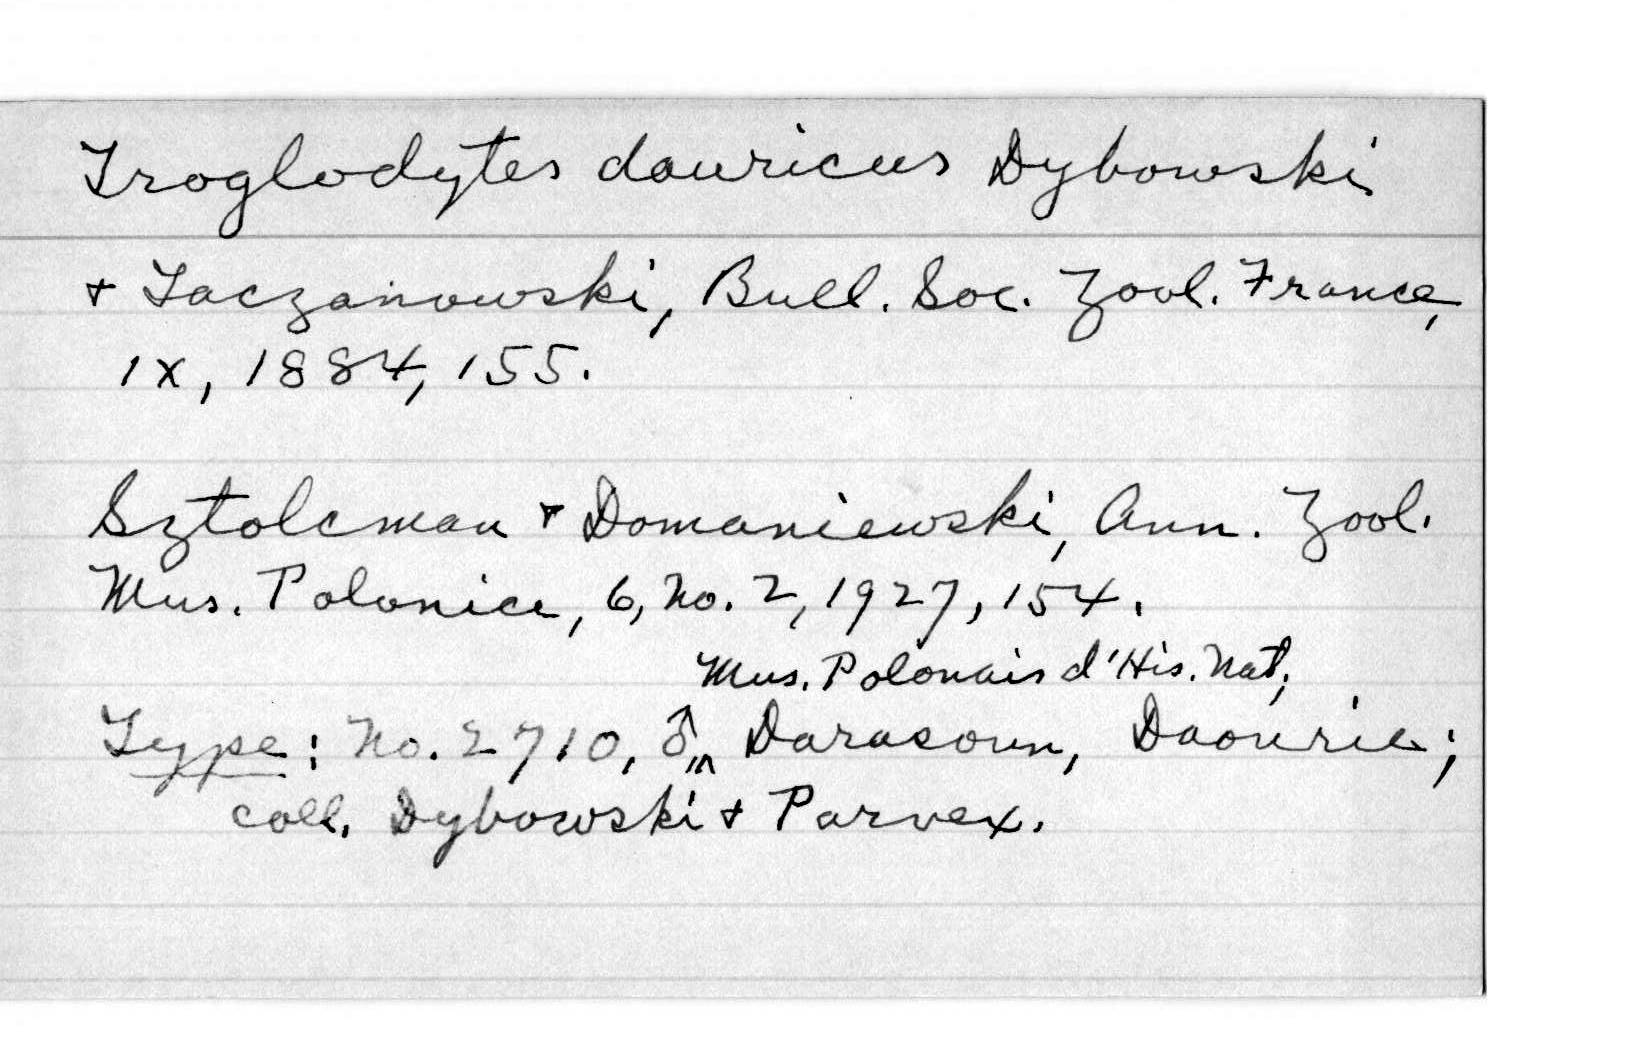 Troglodytes dauricus Dybowski
+ Taczanowski, Bull. Soc. Zool. France,
IX, 1884, 155.
Sztolcman + Domaniewski, Ann. Zool.
Mus. Polonici, 6, No. 2, 1927, 154.
Mus. Polonais d'His. Nat;
Type: No. 2710, ♂, Darasoun, Daourie;
coll. Dybowski + Parvex.